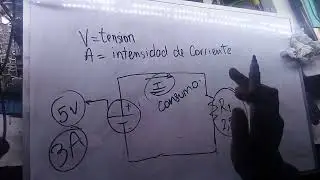 V = tension
A = intensidad de Corriente
I
Consumo
5V
+
3A
R1